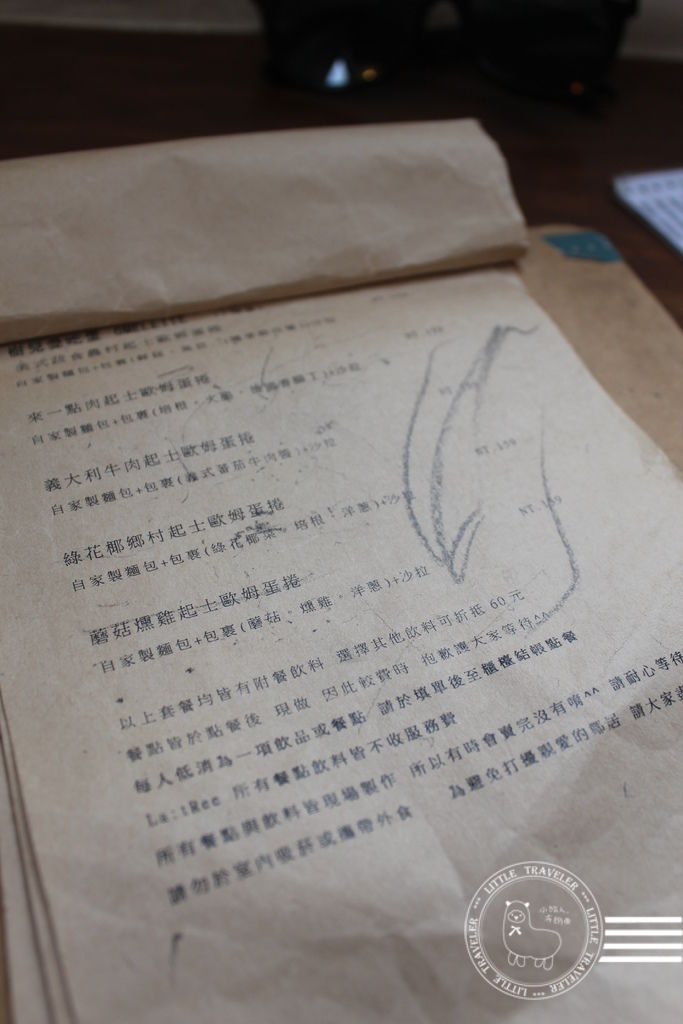 來一點肉起士歐姆蛋捲
自家製麵包+包裹(培根。火腿。德國香腸丁)+沙拉
義大利牛肉起士歐姆蛋捲
自家製麵包+包裹(義式蕃茄牛肉醬)+沙拉
NT.159
綠花椰鄉村起士歐姆蛋捲
自家製麵包+包裹(綠花椰菜。培根!洋蔥)+沙拉
NT.159
蘑菇燻雞起士歐姆蛋捲
自家製麵包+包裹(蘑菇。燻雞。洋蔥)+沙拉
以上套餐均皆有附餐飲料 選擇其他飲料可折抵 60 元
餐點皆於點餐後 現做 因此較費時 抱歉讓大家等待^^
每人低消為一項飲品或餐點 請於填單後至櫃檯結帳點餐
La:tRee 所有餐點飲料皆不收服務費
所有餐點與飲料皆現場製作 所以有時會賣完沒有唷^^ 請耐心等待
請勿於室內吸菸或攜帶外食 為避免打擾親愛的鄰居 請大家
LITTLE TRAVELER
LITTLE TRAVELER
LITTLE TRAVELER
LITTLE TRAVELER